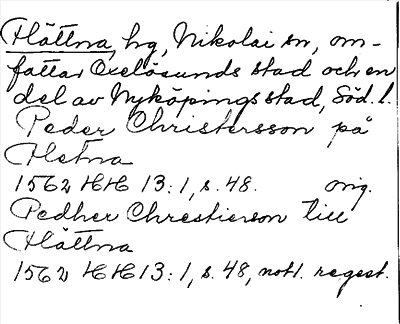 Hättna, hg, Nikolai sn, om-
fattar Oxelösunds stad och en
del av Nyköpings stad, Söd. l.
Peder Christersson på
Hetna
1562 HH 13:1, s. 48. orig.
Pedher Chrestierson till
Hättna
1562 HH 13:1, s. 48, not1. regest.